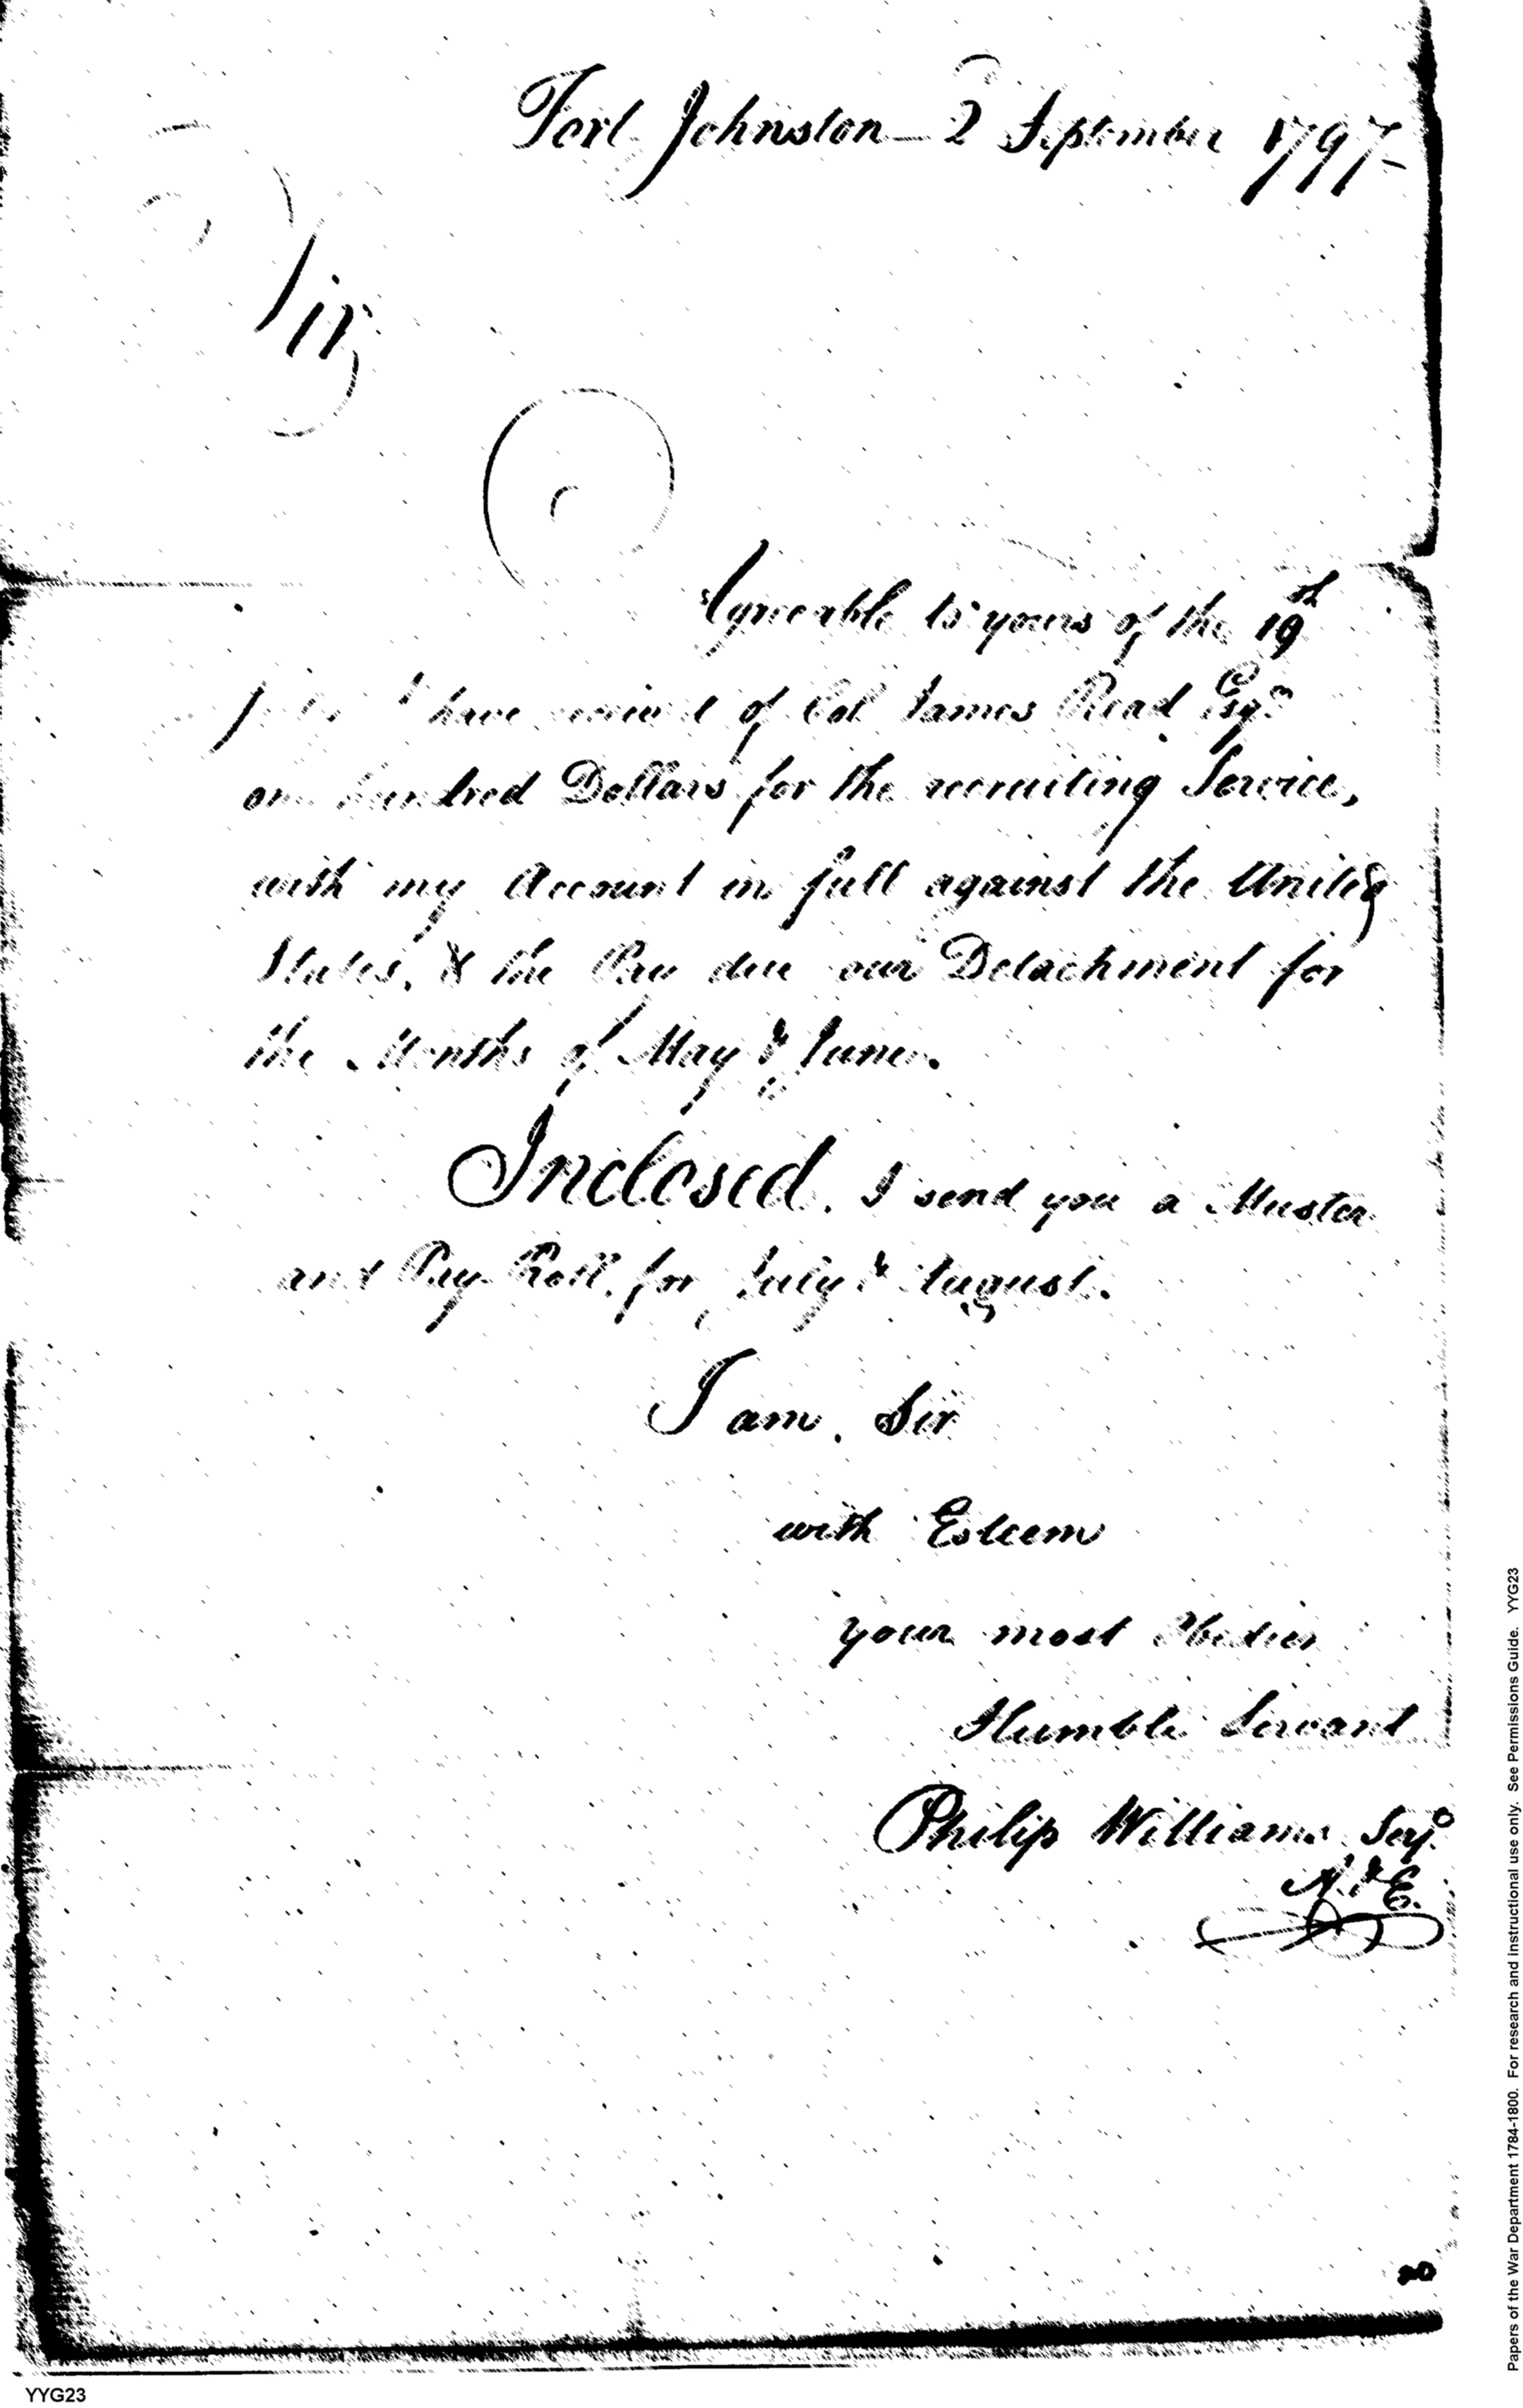 Fort Johnston — 2 September 1797 —
Sir,
Agreeable to yours of the 19th
I have received of Col James Read Esqr
one hundred Dollars for the recruiting Service,
with my Account in full against the United
States, & the Pay due our Detachment for
the Months of May & June.
Inclosed. I send you a Muster
and Pay Roll. for July & August.
I am. Sir
with Esteem
your most Obedien
Humble Servant
Philip Williams Serjt
A. & E.
20
YYG23
Papers of the War Department 1784-1800. For research and instructional use only. See Permissions Guide. YYG23